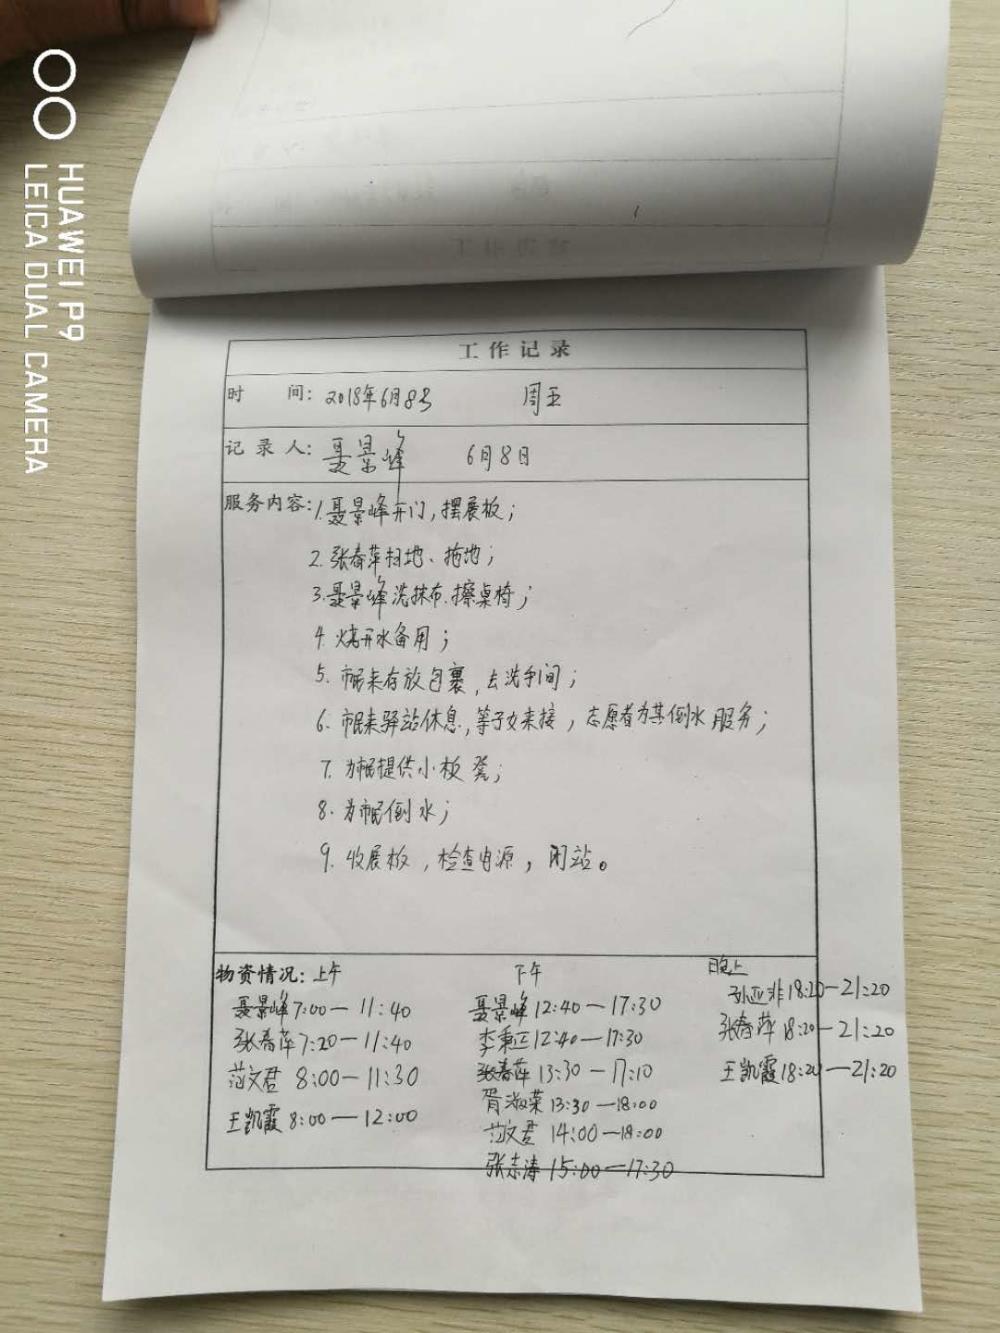 HUAWEI P9
LEICA DUAL CAMERA
工作记录
时 间: 2018年6月8号 周五
记录人: 聂景峰 6月8日
服务内容: 1.聂景峰开门,摆展板;
2.张春萍扫地、拖地;
3.聂景峰洗抹布.擦桌椅;
4.烧开水备用;
5.市民来存放包裹,去洗手间;
6.市民来驿站休息,等子女来接,志愿者为其倒水服务;
7.为市民提供小板凳;
8.为市民倒水;
9.收展板,检查电源,闭站。
物资情况: 上午 下午 晚上
聂景峰7:00—11:40 聂景峰12:40—17:30 孙亚非18:20—21:20
张春萍7:20—11:40 李秉正12:40—17:30 张春萍18:20—21:20
范文君 8:00—11:30 张春萍 13:30—17:10 王凯霞18:20—21:20
王凯霞8:00—12:00 胥淑荣13:30—18:00
范文君 14:00—18:00
张志涛 15:00—17:30